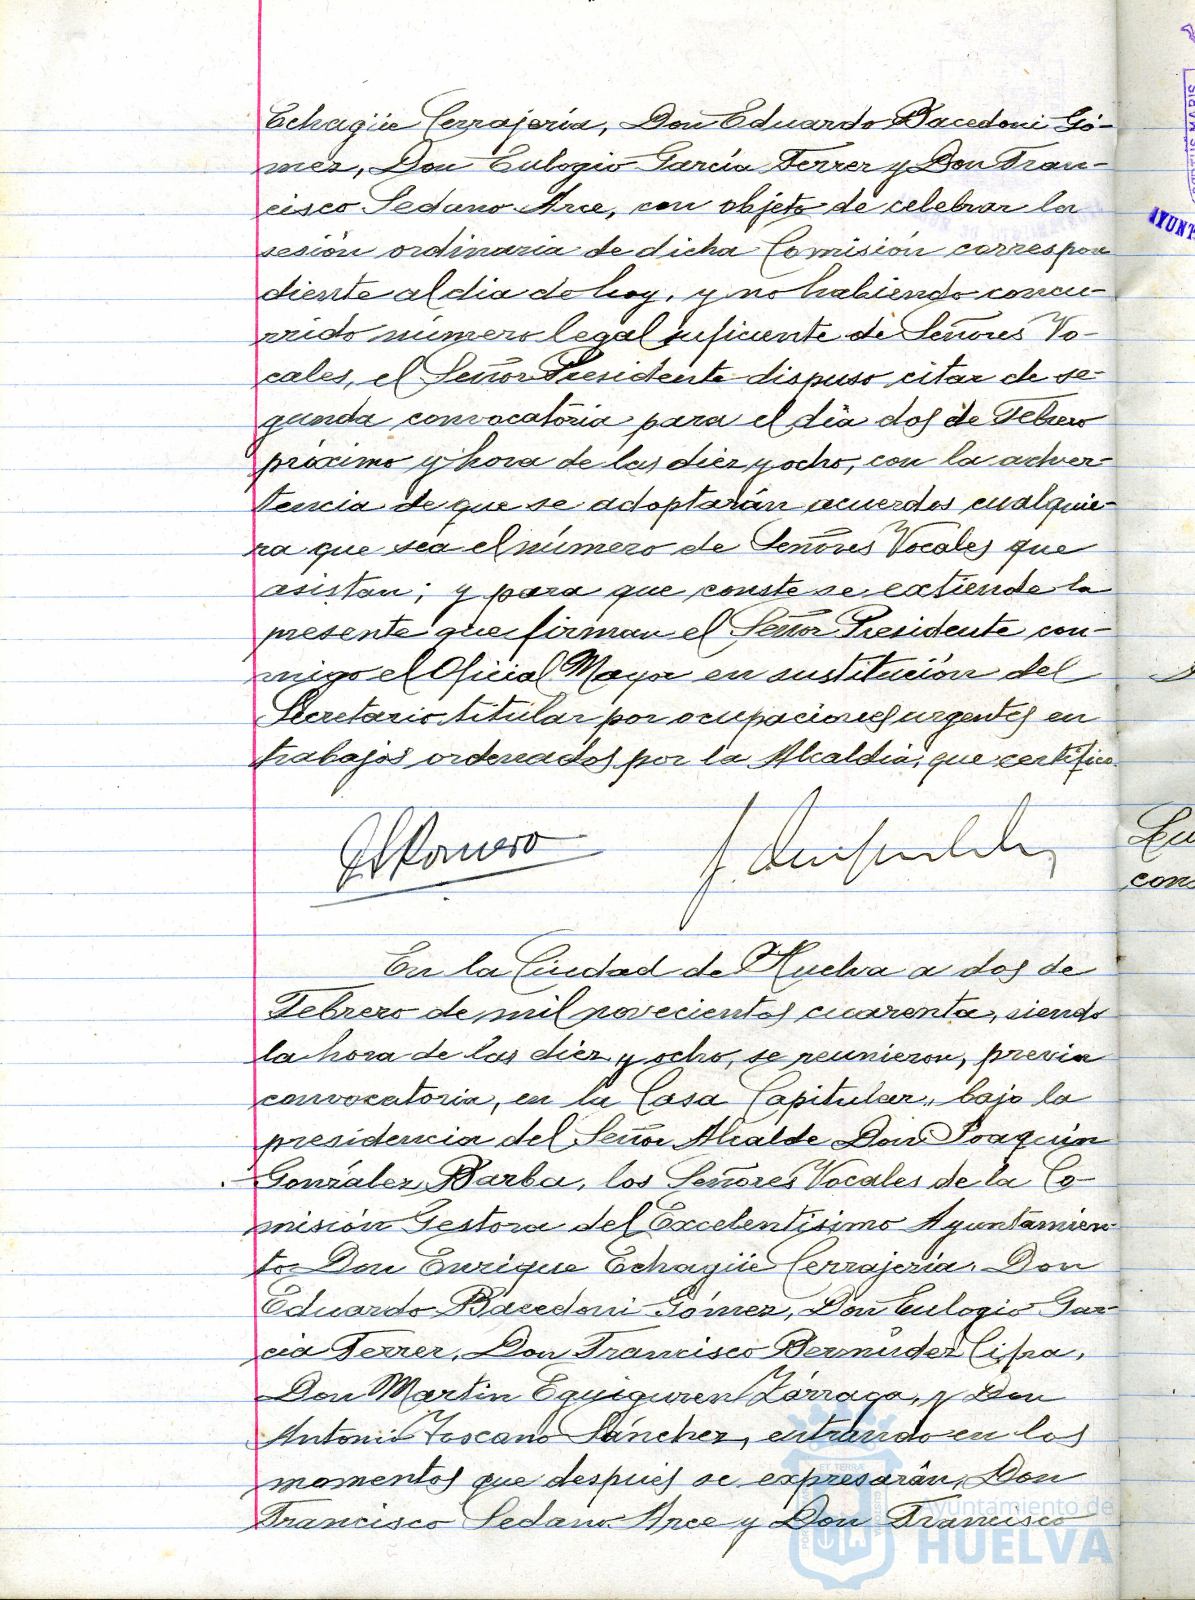 Echagüe Cerrajería, Don Eduardo Bacedoni Gó-
mez, Don Eulogio García Ferrer y Don Fran-
cisco Sedano Arce, con objeto de celebrar la
sesión ordinaria de dicha Comisión correspon
diente al dia de hoy, y no habiendo concu-
rrido número legal suficiente de Señores Vo-
cales, el Señor Presidente dispuso citar de se-
gunda convocatoria para el día dos de Febrero
próximo y hora de las diez y ocho, con la adver-
tencia de que se adoptarán acuerdos cualquie-
ra que sea el número de Señores Vocales que
asistan; y para que conste se extiende la
presente que firman el Señor Presidente con-
migo el Oficial Mayor en sustitución del
Secretario titular por ocupaciones urgentes en
trabajos ordenados por la Alcaldia, que certifico.
Romero
En la Ciudad de Huelva a dos de
Febrero de mil novecientos cuarenta, siendo
la hora de las diez y ocho, se reunieron, previa
convocatoria, en la Casa Capitular, bajo la
presidencia del Señor Alcalde Don Joaquín
González Barba, los Señores Vocales de la Co-
misión Gestora del Excelentísimo Ayuntamien-
to Don Enrique Echagüe Cerrajería, Don
Eduardo Bacedoni Gómez, Don Eulogio Gar-
cía Ferrer, Don Francisco Bermúdez Cipa,
Don Martín Eguiguren Zárraga, y Don
Antonio Toscano Sánchez, entrando en los
momentos que después se expresarán, Don
Francisco Sedano Arce y Don Francisco
Ayuntamiento de
HUELVA